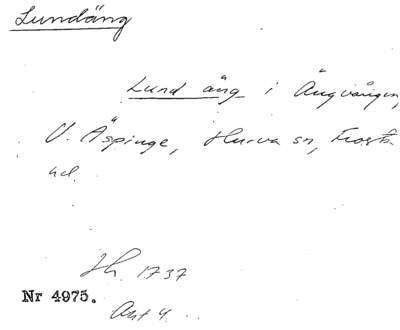 Lundäng
Lund äng i Ängvången,
V. Äspinge, Hurva sn, Frosta
hd.
Hh. 1737
Nr 4975.
Akt 4.